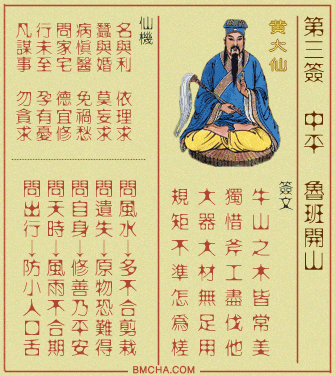 第三簽 中平 魯班開山
黃大仙
簽文
牛山之木皆常美
獨惜斧工盡伐他
大器大材無足用
規矩不準怎為槎
仙機
名與利 依理求
蠶與婚 莫妄求
病慎醫 免禍愁
問家宅 德宜修
行未至 孕有憂
凡謀事 勿貪求
問風水→多不合剪裁
問遺失→原物恐難得
問自身→修善乃平安
問天時→風雨不合期
問出行→防小人口舌
BMCHA.COM